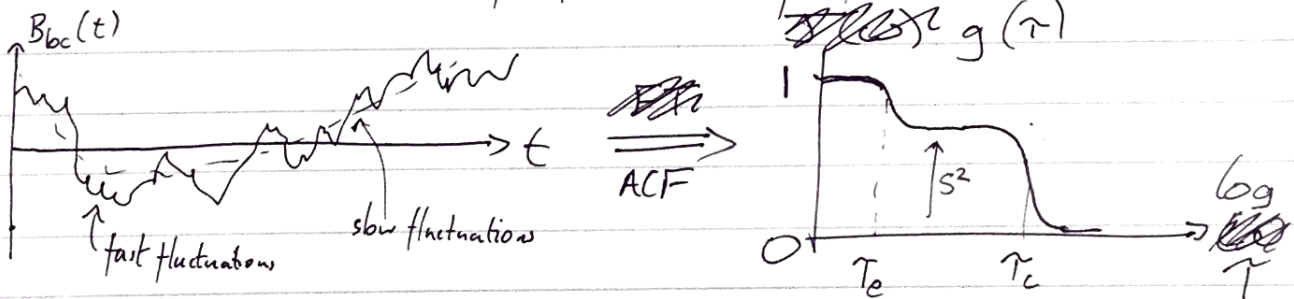 B_loc(t)
fast fluctuations
slow fluctuations
t
ACF
g(τ)
1
S²
0
τ_e
τ_c
log
τ